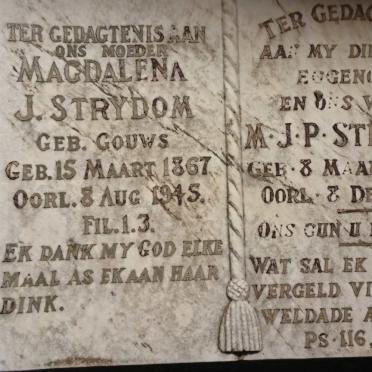 TER GEDAGTENIS AAN
ONS MOEDER
MAGDALENA
J. STRYDOM
GEB. GOUWS
GEB. 15 MAART 1867
OORL. 8 AUG 1945.
FIL. 1.3.
EK DANK MY GOD ELKE
MAAL AS EK AAN HAAR
DINK.
TER
AAN MY
EN ONS
M. J. P.
GEB. 8
OORL. 8
ONS GUN U
WAT SAL EK
VERGELD
WELDADE
PS. 116,